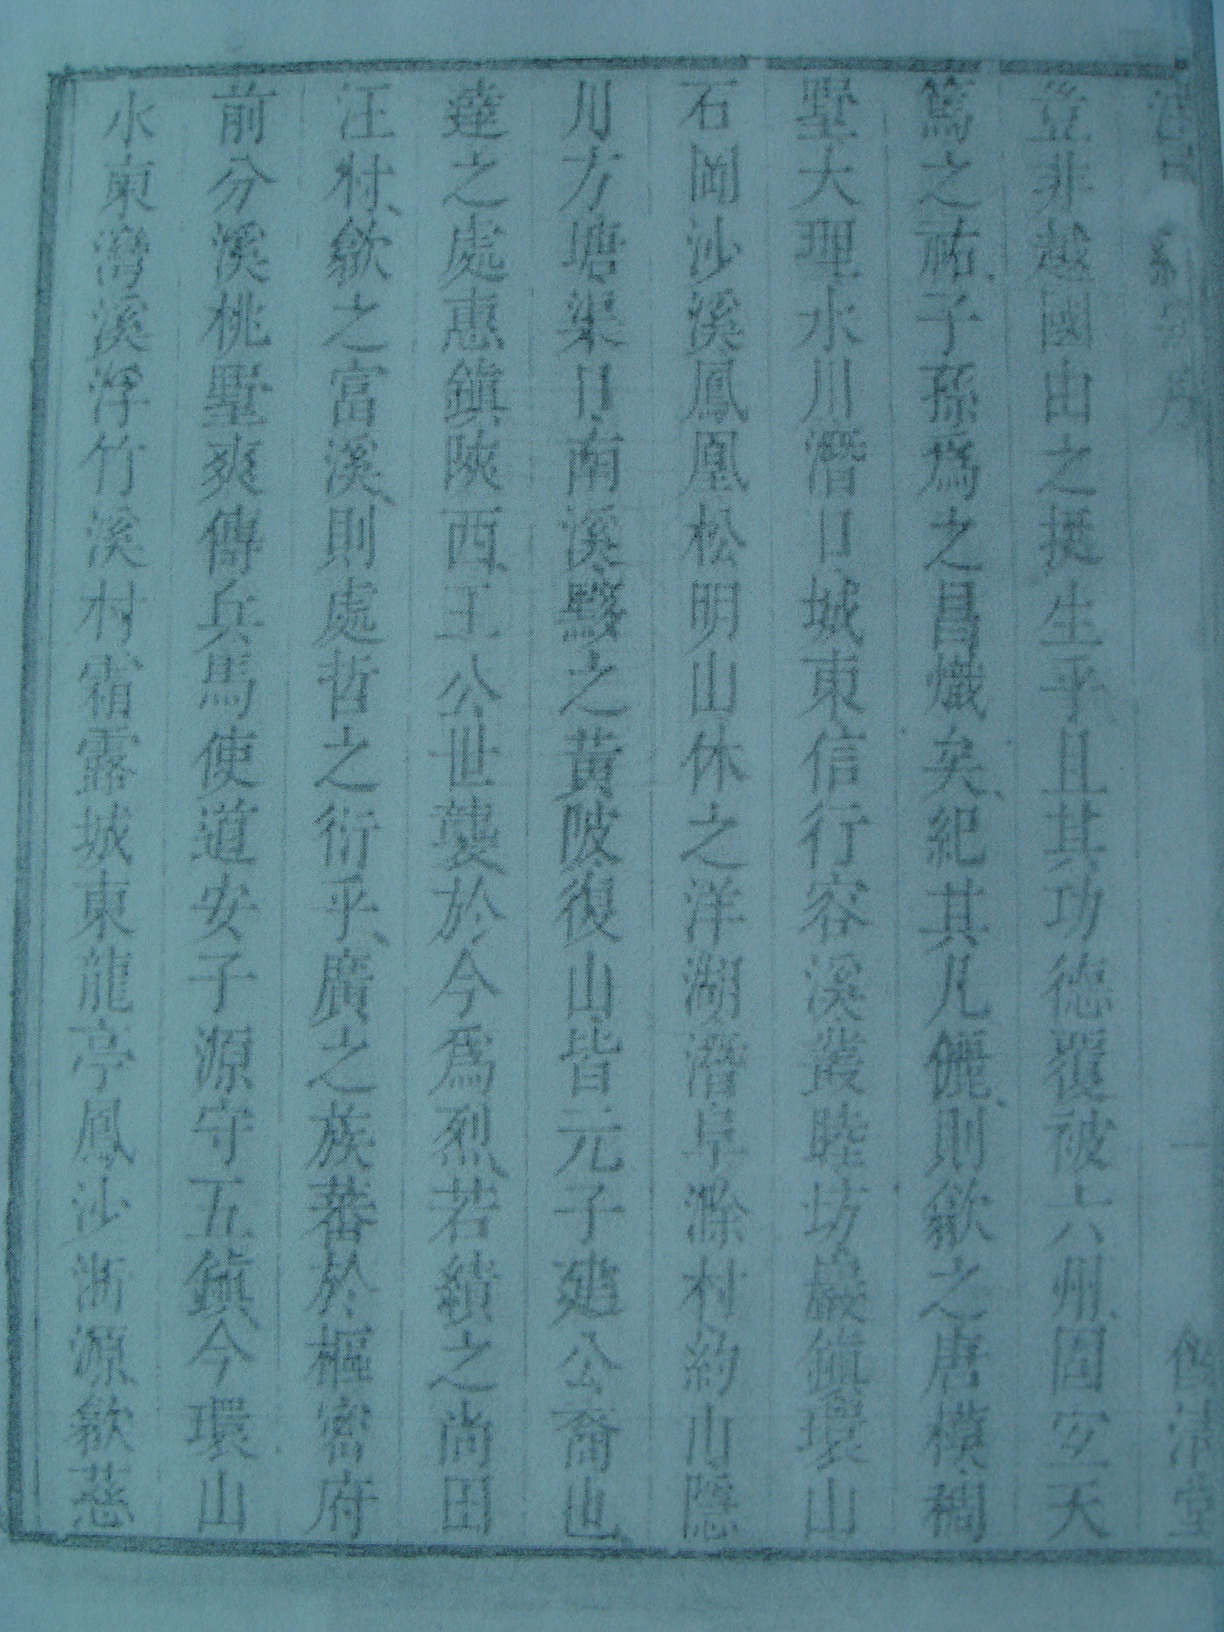 豈非越國由之挺生乎且其功德覆被六州固宜天
篤之祐子孫爲之昌熾矣紀其凡儷則歙之唐模稠
墅大理水川潛口城東信行容溪叢睦坊巖鎭環山
石岡沙溪鳳凰松明山休之洋湖潛阜滁村約山隱
川方塘渠口南溪黟之黃陂復山皆元子建公裔也
達之處惠鎭陝西王公世襲於今爲烈若績之尚田
汪村歙之富溪則處哲之衍乎廣之族蕃於樞密府
前分溪桃墅爽傳兵馬使道安子源守五鎭今環山
水東灣溪浮竹溪村霜露城東龍亭鳳沙浙源歙慈